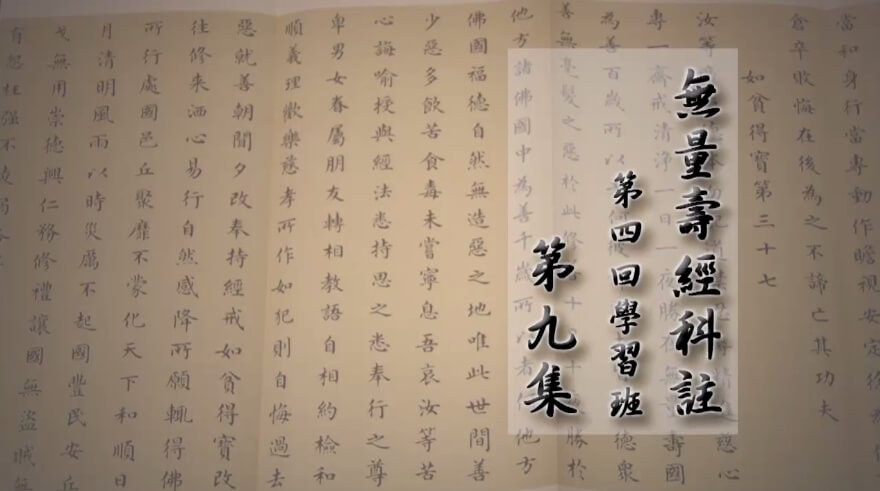 無量壽經科註
第四回學習班
第九集
當和身行當專動作瞻視安定徐為
倉卒敗悔在後為之不諦亡其功夫
如貧得寶第三十七
汝等慈心
專一齋戒清淨一日一夜勝在無量壽國
為善百歲所以德眾
善無毫髮之惡於此修善十日十夜勝於
他方諸佛國中為善千歲所以者何他方
佛國福德自然無造惡之地唯此世間善
少惡多飲苦食毒未嘗寧息吾哀汝等苦
心誨喻授與經法悉持思之悉奉行之尊
卑男女眷屬朋友轉相教語自相約檢和
順義理歡樂慈孝所作如犯則自悔過去
惡就善朝聞夕改奉持經戒如貧得寶改
往修来洒心易行自然感降所願輒得佛
所行處國邑丘聚靡不蒙化天下和順日
月清明風雨以時災厲不起國豐民安兵
戈無用崇德興仁務修禮讓國無盜賊無
有怨枉強不凌弱